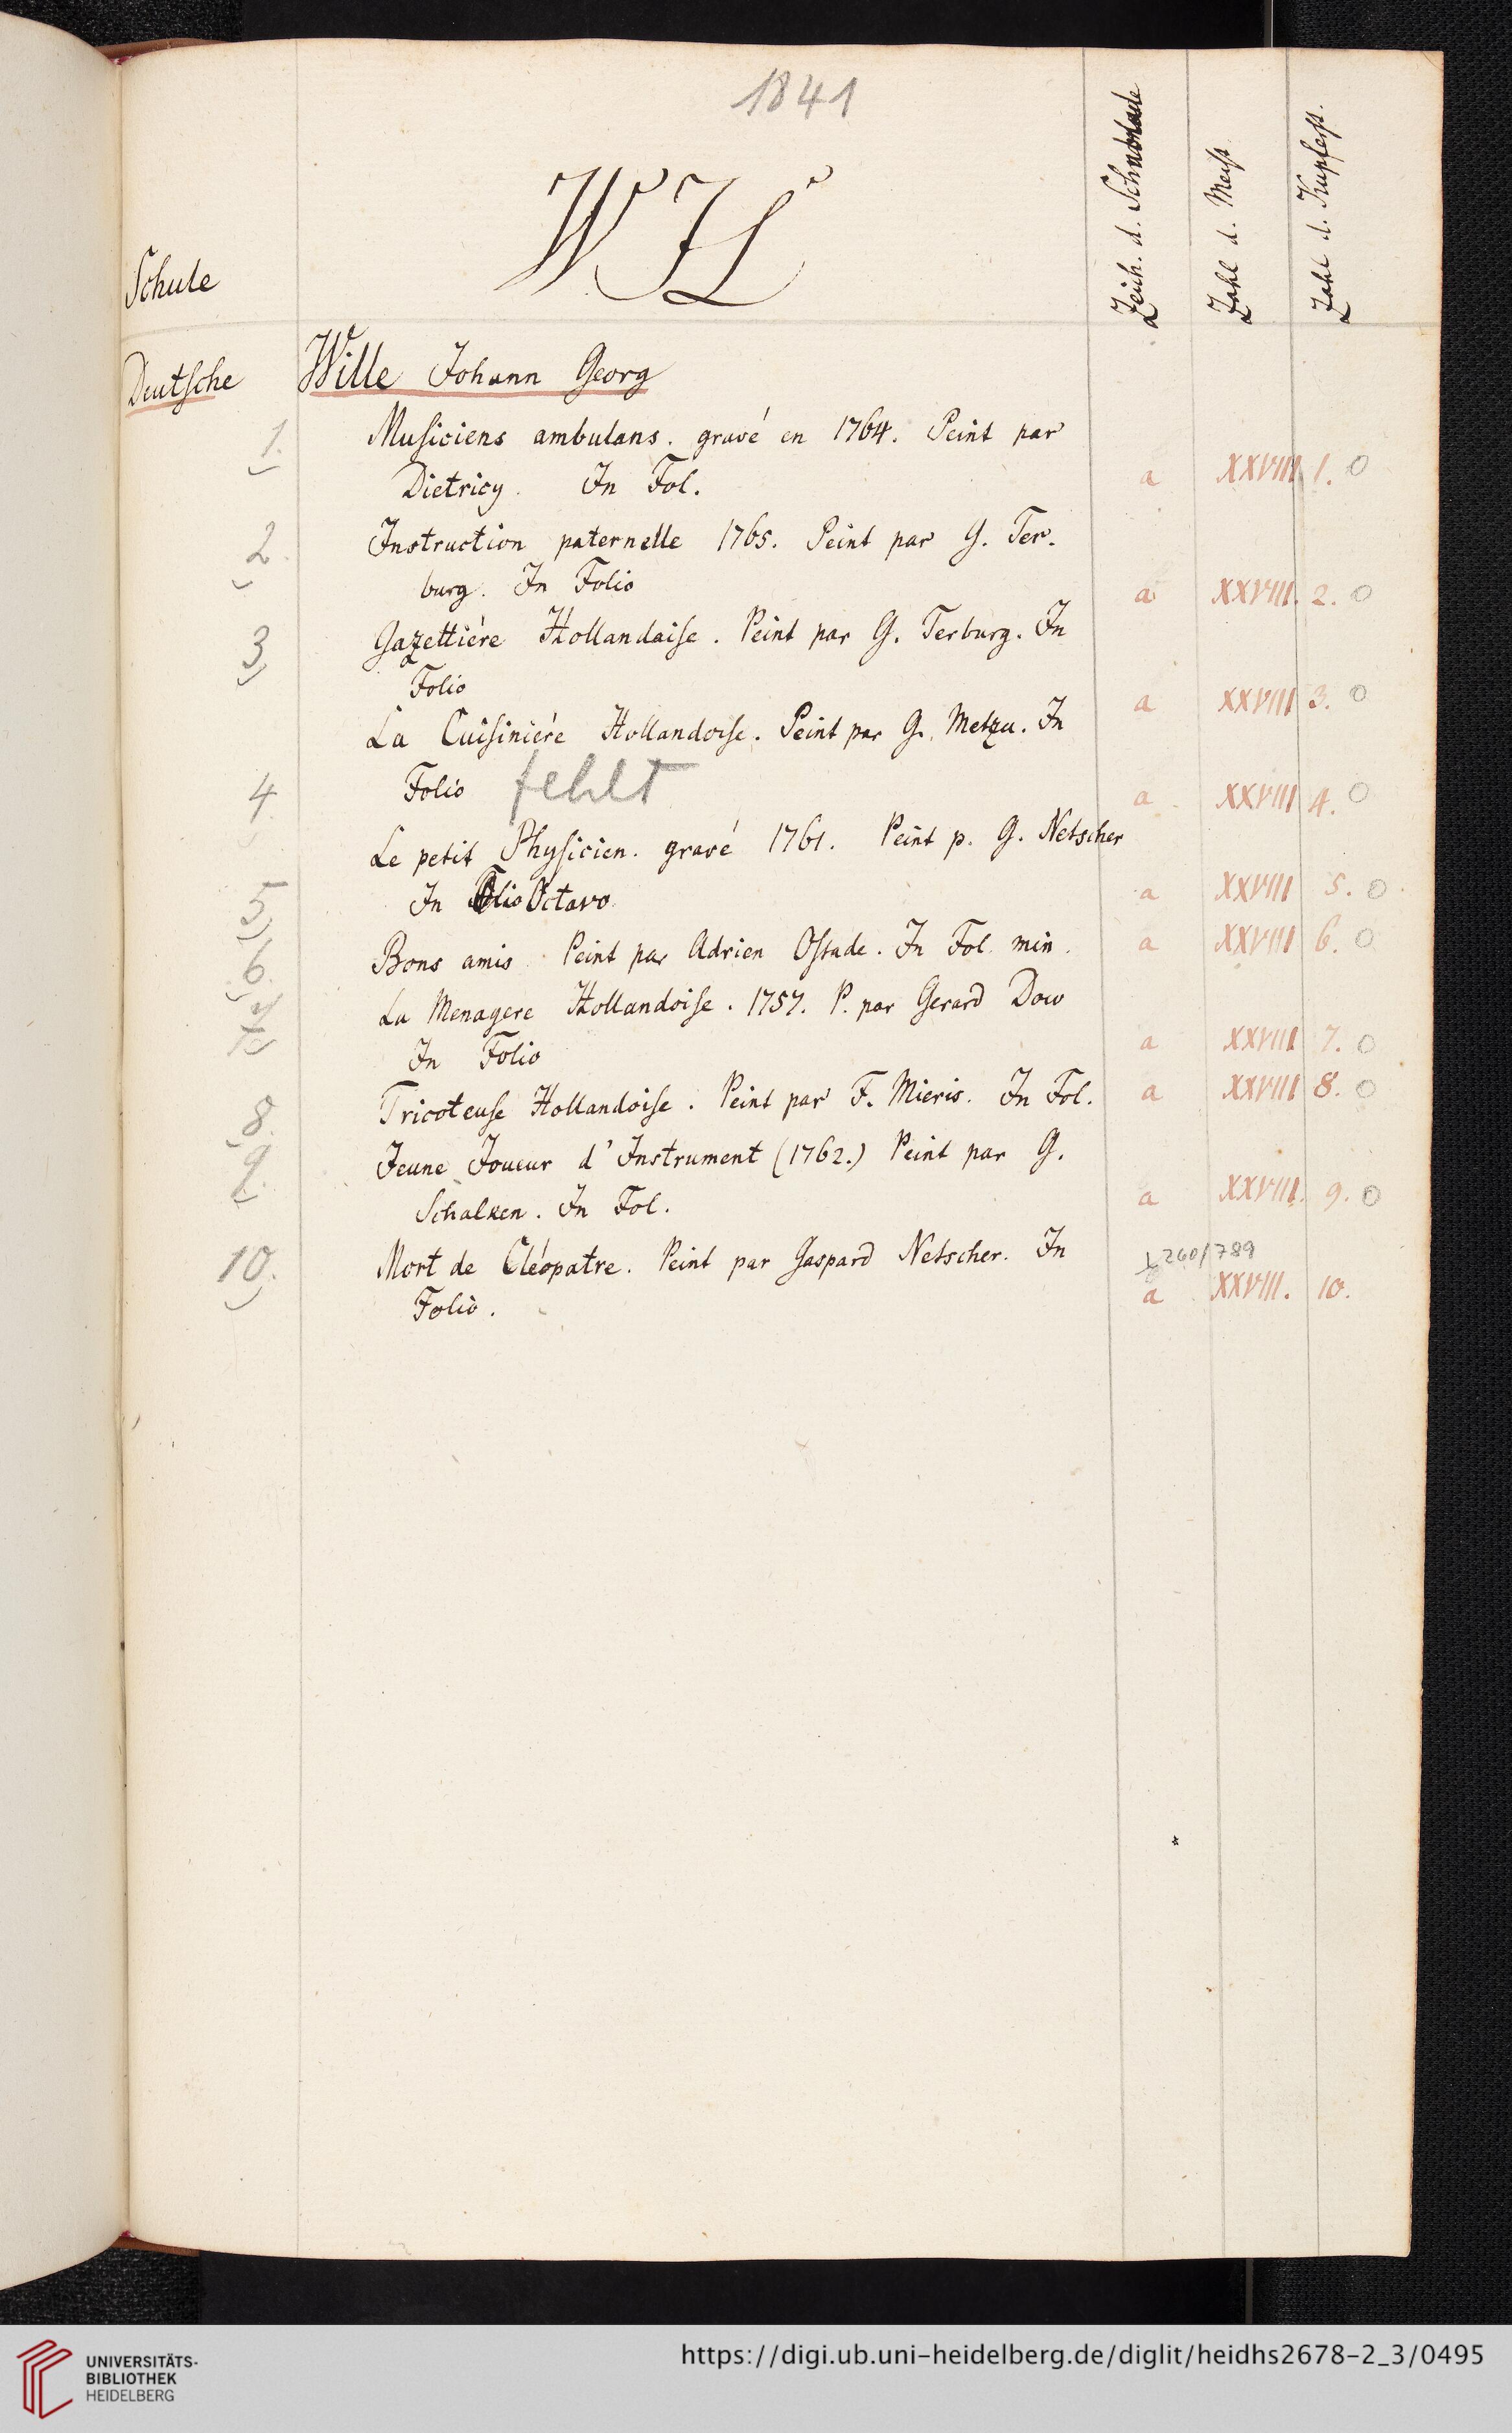 1841
WIL
Schule
Zeich. d. Schublade
Zahl d. Meist.
Zahl d. Kupferst.
Deutsche Wille Johann Georg
1. Musiciens ambulans. gravé en 1764. Peint par
Dietricy. In Fol. a XXVIII. 1. O
2. Instruction paternelle 1765. Peint par G. Ter.
burg. In Folio a XXVIII. 2. O
3 Gazettiére Hollandaise. Peint par G. Terburg. In
Folio a XXVIII 3. O
La Cuisiniére Hollandoise. Peint par G. Metzu. In
4. Folio fehlt a XXVIII 4. O
Le petit Physicien. gravé 1761. Peint p. G. Netscher
5 In Octavo a XXVIII 5. O
6. Bons amis Peint par Adrien Ostade. In Fol. min. a XXVIII 6. O
La Menagere Hollandoise. 1757. P. par Gerard Dow
7 In Folio a XXVIII 7. O
8. Tricoteuse Hollandoise. Peint par F. Mieris. In Fol. a XXVIII 8. O
9. Jeune Joueur d'Instrument (1762.) Peint par G.
Schalken. In Fol. a XXVIII. 9. O
10. Mort de Cléopatre. Peint par Gaspard Netscher. In
260/789
Folio. a XXVIII. 10.
UNIVERSITÄTS-
BIBLIOTHEK
HEIDELBERG
https://digi.ub.uni-heidelberg.de/diglit/heidhs2678-2_3/0495